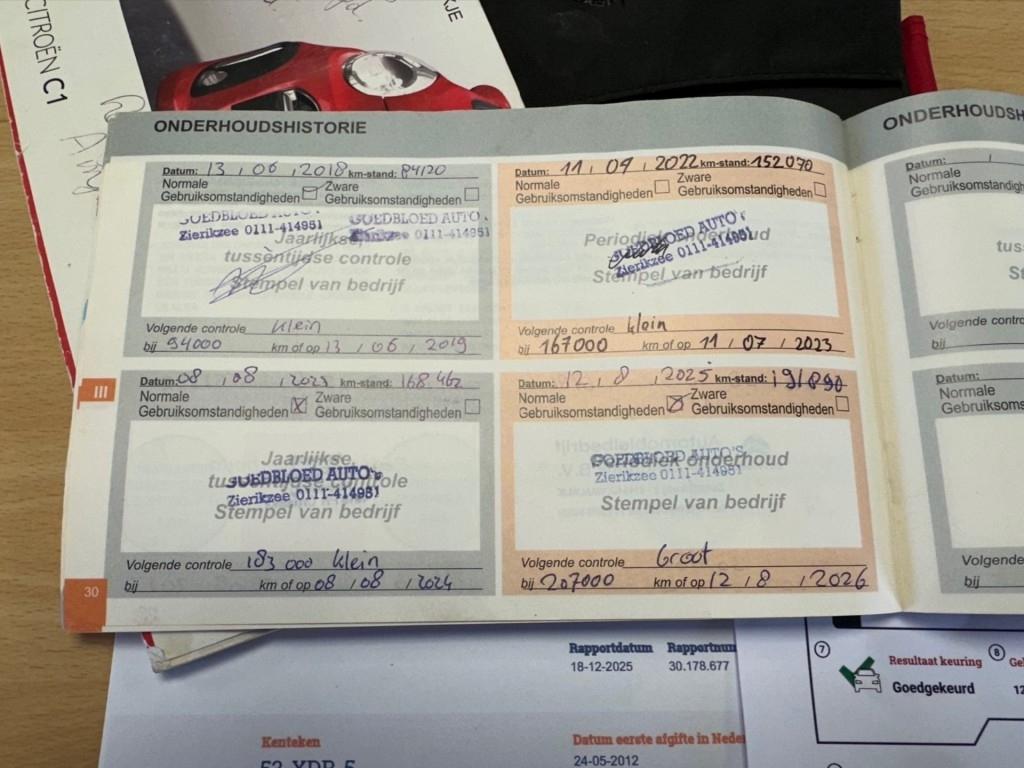 CITROËN C1
ONDERHOUDSHISTORIE
Datum: 13 , 06 , 2018 km-stand: 84120
Normale Gebruiksomstandigheden Zware Gebruiksomstandigheden
GOEDBLOED AUTO'S GOEDBLOED AUTO'S
Zierikzee 0111-414951 Zierikzee 0111-414951
Jaarlijkse,
tussentijdse controle
Stempel van bedrijf
Volgende controle klein
bij 94000 km of op 13 , 06 , 2019
Datum: 11 , 07 , 2022 km-stand: 152070
Normale Gebruiksomstandigheden Zware Gebruiksomstandigheden
GOEDBLOED AUTO'S
Zierikzee 0111-414951
Periodiek onderhoud
Stempel van bedrijf
Volgende controle klein
bij 167000 km of op 11 , 07 , 2023
III
Datum: 08 , 08 , 2023 km-stand: 168462
Normale Gebruiksomstandigheden Zware Gebruiksomstandigheden
Jaarlijkse,
GOEDBLOED AUTO'S
tussentijdse controle
Zierikzee 0111-414951
Stempel van bedrijf
Volgende controle 183 000 klein
bij km of op 08 , 08 , 2024
Datum: 12 , 8 , 2025 km-stand: 191890
Normale Gebruiksomstandigheden Zware Gebruiksomstandigheden
GOEDBLOED AUTO'S
Periodiek onderhoud
Zierikzee 0111-414951
Stempel van bedrijf
Volgende controle Groot
bij 207000 km of op 12 , 8 , 2026
30
ONDERHOUDSH
Datum:
Normale
Gebruiksomstandigh
Volgende contro
bij
Datum:
Normale
Gebruiksoms
Volgende
bij
Rapportdatum Rapportnum
18-12-2025 30.178.677
Kenteken
Datum eerste afgifte in Nede
24-05-2012
7
Resultaat keuring
Goedgekeurd
8